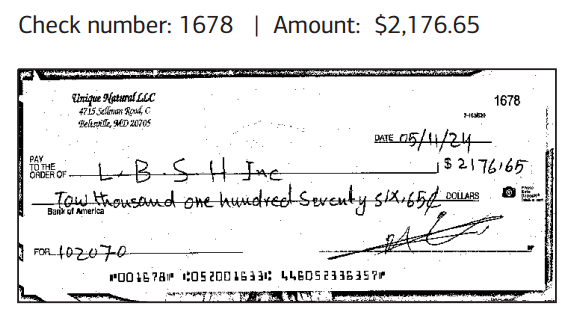 Check number: 1678 | Amount: $2,176.65
Unique Natural LLC
4715 Sellman Road, C
Beltsville, MD 20705
1678
DATE 05/11/24
PAY
TO THE
ORDER OF L.B.S.H Inc $2176.65
Tow thousand one hundred Seventy Six, 65¢ DOLLARS
Bank of America
FOR 102070
⑈001678⑈ ⑆052001633⑆ 446052336357⑈